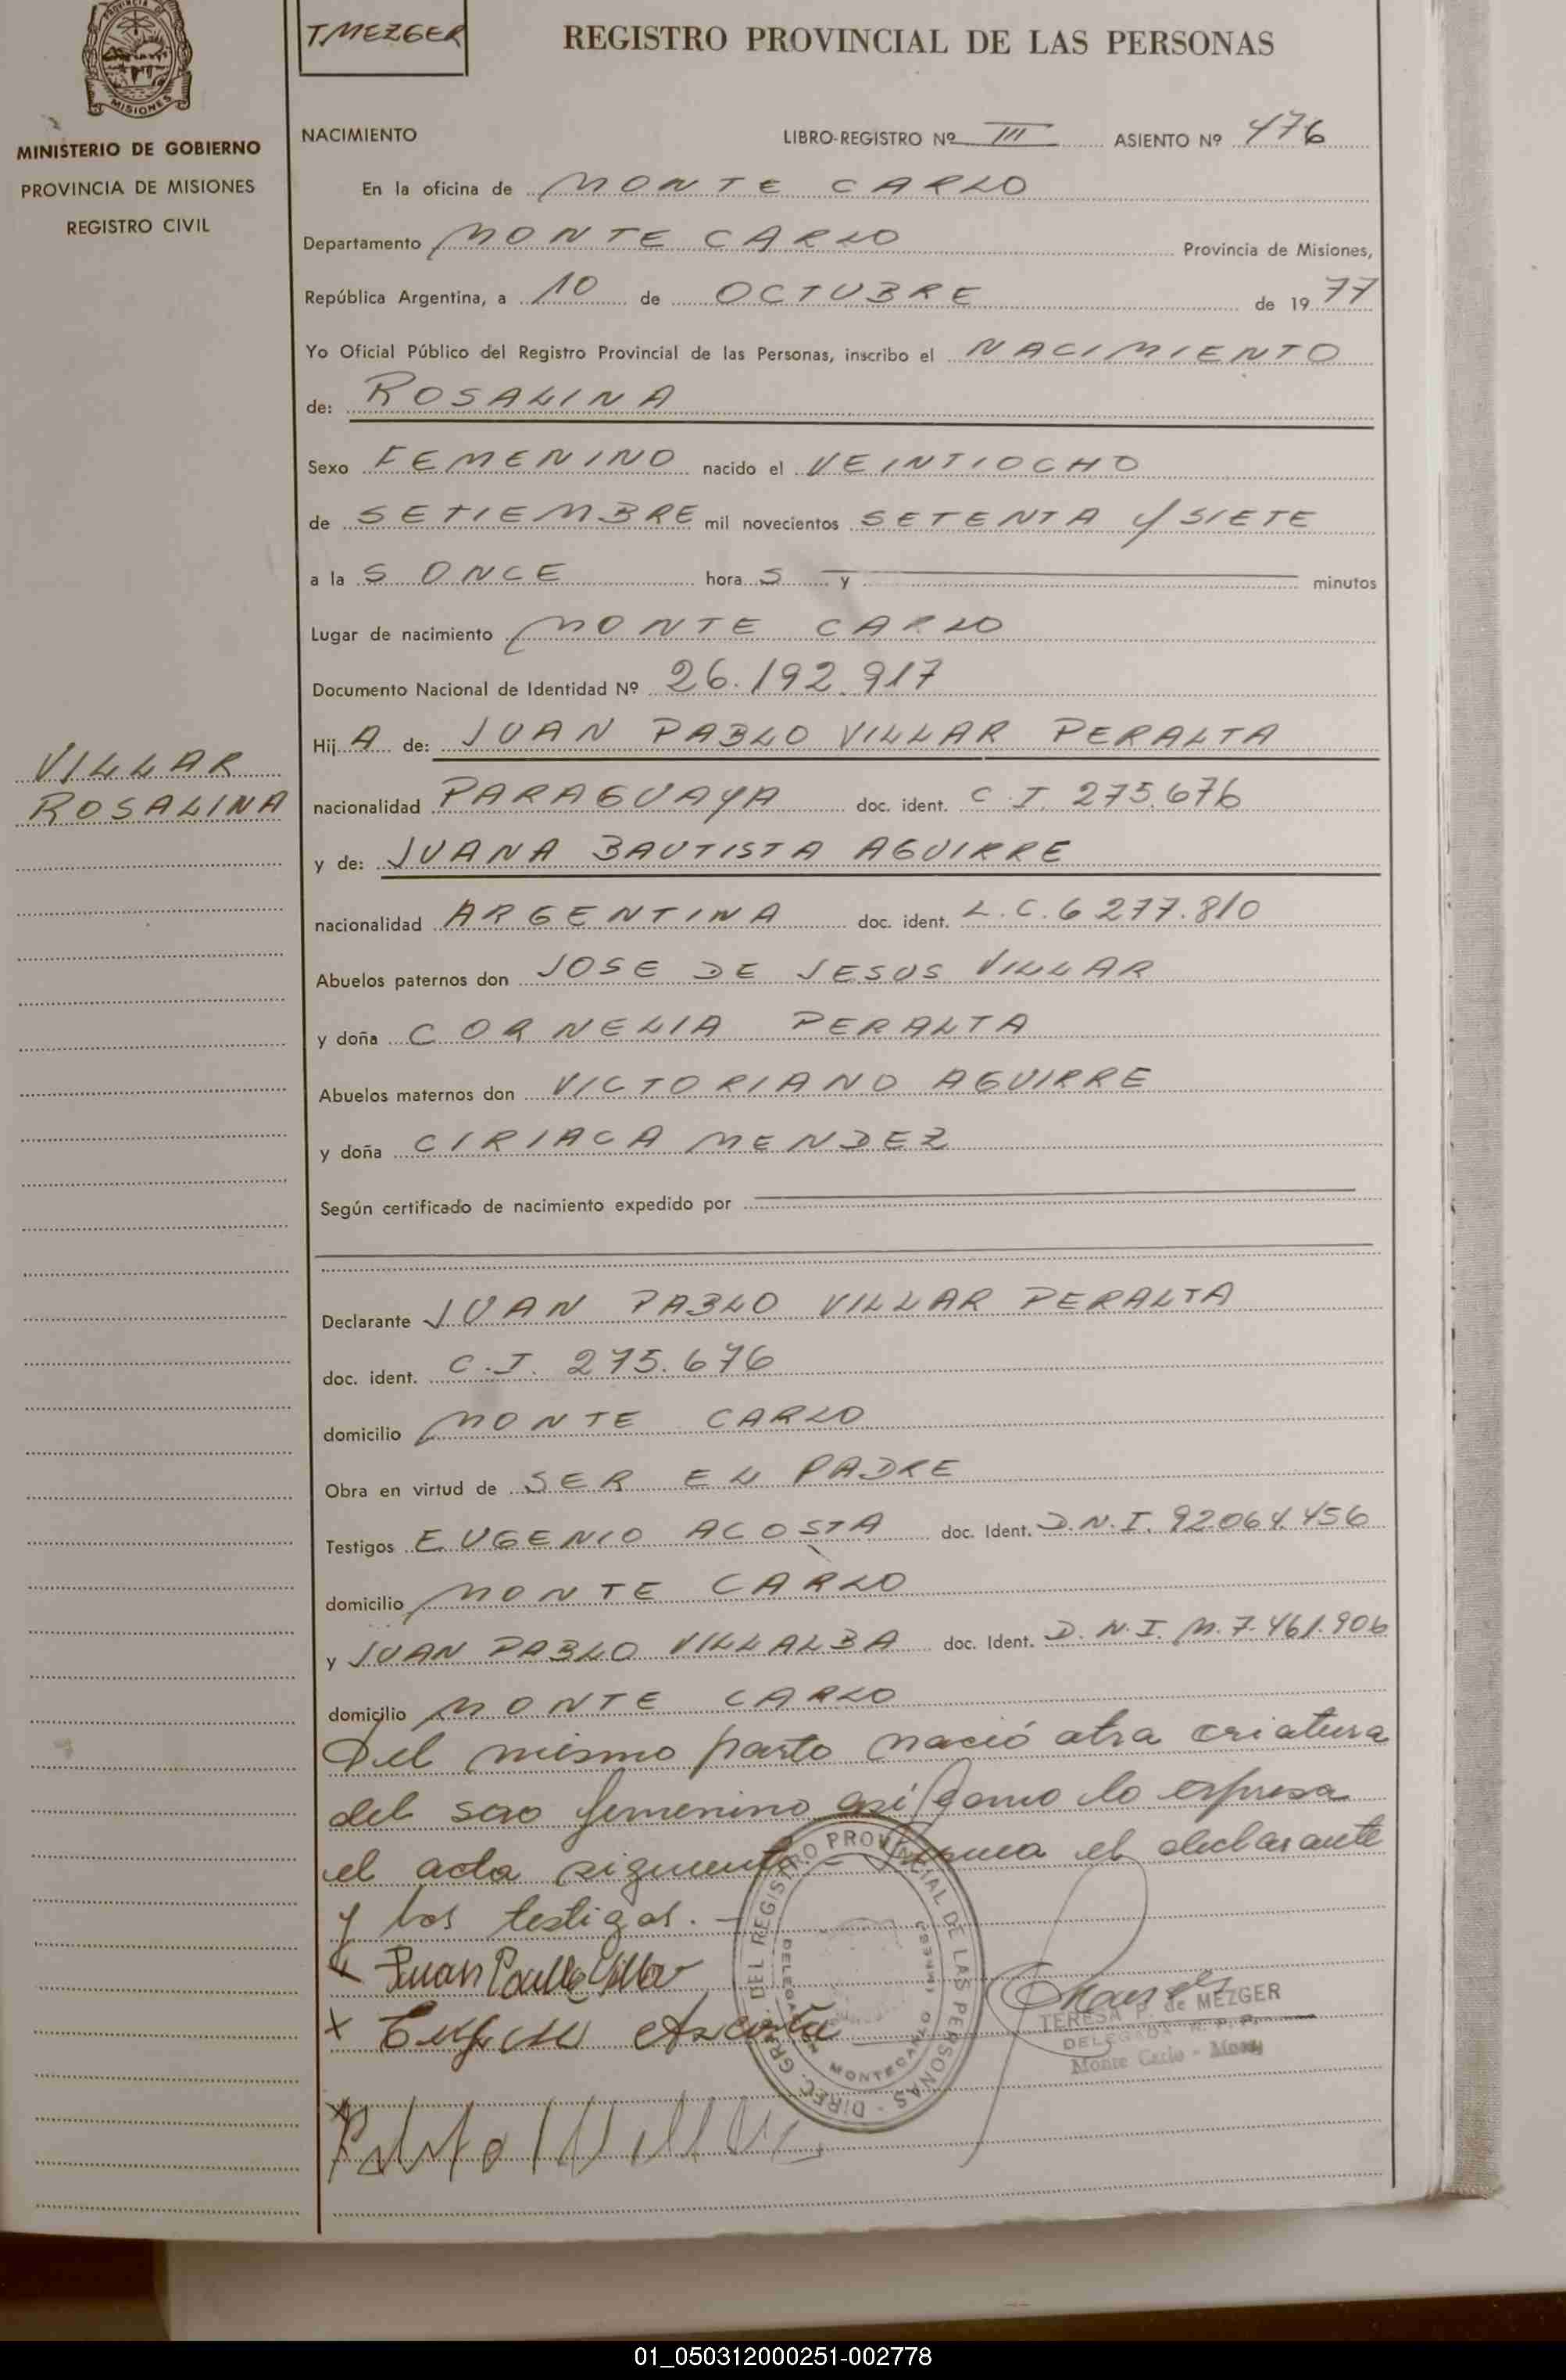 PROVINCIA DE
MISIONES
MINISTERIO DE GOBIERNO
PROVINCIA DE MISIONES
REGISTRO CIVIL
VILLAR
ROSALINA
T. MEZGER
REGISTRO PROVINCIAL DE LAS PERSONAS
NACIMIENTO LIBRO-REGISTRO Nº III ASIENTO Nº 476
En la oficina de MONTE CARLO
Departamento MONTE CARLO Provincia de Misiones,
República Argentina, a 10 de OCTUBRE de 1977
Yo Oficial Público del Registro Provincial de las Personas, inscribo el NACIMIENTO
de: ROSALINA
Sexo FEMENINO nacido el VEINTIOCHO
de SETIEMBRE mil novecientos SETENTA Y SIETE
a la S ONCE hora S y minutos
Lugar de nacimiento MONTE CARLO
Documento Nacional de Identidad Nº 26.192.917
Hij A de: JUAN PABLO VILLAR PERALTA
nacionalidad PARAGUAYA doc. ident. C.I. 275.676
y de: JUANA BAUTISTA AGUIRRE
nacionalidad ARGENTINA doc. ident. L.C. 6.277.810
Abuelos paternos don JOSE DE JESUS VILLAR
y doña CORNELIA PERALTA
Abuelos maternos don VICTORIANO AGUIRRE
y doña CIRIACA MENDEZ
Según certificado de nacimiento expedido por
Declarante JUAN PABLO VILLAR PERALTA
doc. ident. C.I. 275.676
domicilio MONTE CARLO
Obra en virtud de SER EL PADRE
Testigos EUGENIO ACOSTA doc. Ident. D.N.I. 92.064.456
domicilio MONTE CARLO
y JUAN PABLO VILLALBA doc. Ident. D.N.I. M. 7.461.906
domicilio MONTE CARLO
Del mismo parto nació otra criatura
del sexo femenino así como lo expresa
el acta siguiente.- Firma el declarante
y los testigos.-
Juan Pablo Villar
x Eugenio Acosta
x
DIREC. GRAL. DEL REGISTRO PROVINCIAL DE LAS PERSONAS
DELEGACION MONTECARLO
TERESA P. de MEZGER
DELEGADA R. P. P.
Monte Carlo - Mnes
01_050312000251-002778